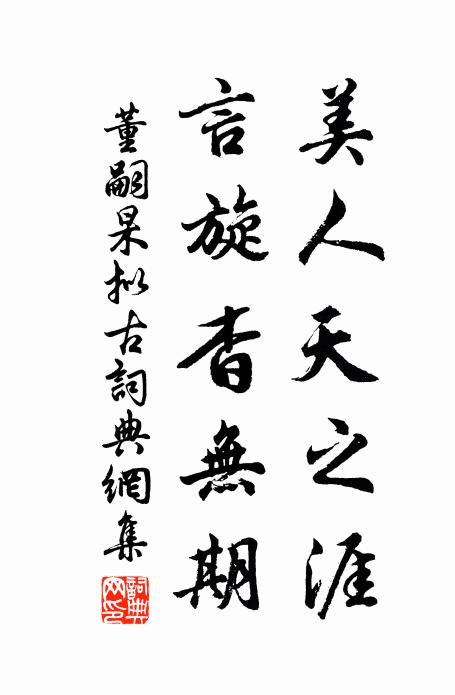 美人天之涯
言旋杳無期
董嗣杲拟古詞典網集
詞典网印